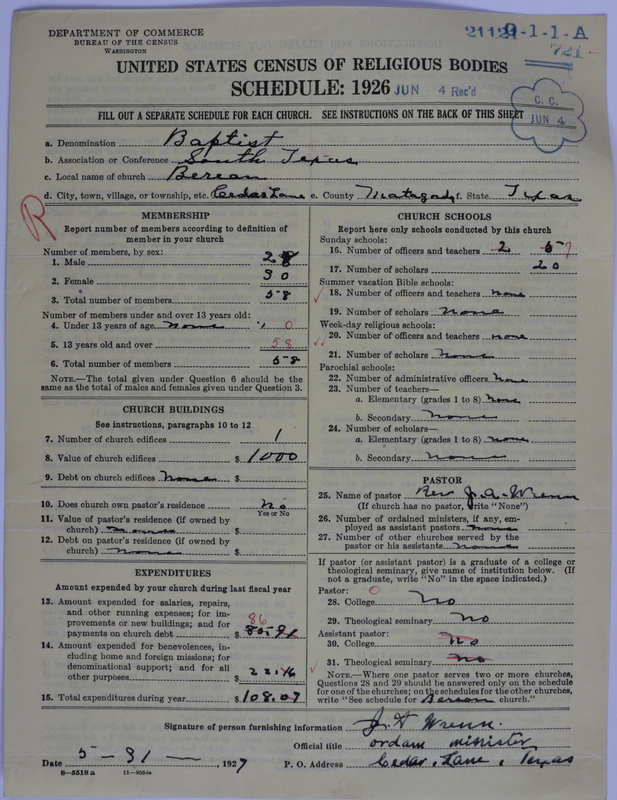 DEPARTMENT OF COMMERCE
BUREAU OF THE CENSUS
WASHINGTON
9-1-1-A
721
UNITED STATES CENSUS OF RELIGIOUS BODIES
SCHEDULE: 1926
JUN 4 Rec'd
C. C.
JUN 4
FILL OUT A SEPARATE SCHEDULE FOR EACH CHURCH. SEE INSTRUCTIONS ON THE BACK OF THIS SHEET
a. Denomination Baptist
b. Association or Conference South Texas
c. Local name of church Berean
d. City, town, village, or township, etc. Cedar Lane e. County Matagad f. State Texas
R
MEMBERSHIP
Report number of members according to definition of
member in your church
Number of members, by sex:
1. Male 28
2. Female 30
3. Total number of members 58
Number of members under and over 13 years old:
4. Under 13 years of age none 0
5. 13 years old and over 58
6. Total number of members 58
NOTE.—The total given under Question 6 should be the
same as the total of males and females given under Question 3.
CHURCH BUILDINGS
See instructions, paragraphs 10 to 12
7. Number of church edifices 1
8. Value of church edifices $ 1000
9. Debt on church edifices None $
10. Does church own pastor's residence No
Yes or No
11. Value of pastor's residence (if owned by
church) $
12. Debt on pastor's residence (if owned by
church) none $
EXPENDITURES
Amount expended by your church during last fiscal year
13. Amount expended for salaries, repairs,
and other running expenses; for im-
provements or new buildings; and for 86
payments on church debt $
14. Amount expended for benevolences, in-
cluding home and foreign missions; for
denominational support; and for all
other purposes $ 22.16
15. Total expenditures during year $ 108.07
CHURCH SCHOOLS
Report here only schools conducted by this church
Sunday schools:
16. Number of officers and teachers 2 5 7
17. Number of scholars 20
Summer vacation Bible schools:
18. Number of officers and teachers none
19. Number of scholars None
Week-day religious schools:
20. Number of officers and teachers none
21. Number of scholars None
Parochial schools:
22. Number of administrative officers None
23. Number of teachers—
a. Elementary (grades 1 to 8) None
b. Secondary None
24. Number of scholars—
a. Elementary (grades 1 to 8) none
b. Secondary None
PASTOR
25. Name of pastor Rev J. A. Wrenn
(If church has no pastor, write "None")
26. Number of ordained ministers, if any, em-
ployed as assistant pastors none
27. Number of other churches served by the
pastor or his assistants None
If pastor (or assistant pastor) is a graduate of a college or
theological seminary, give name of institution below. (If
not a graduate, write "No" in the space indicated.)
Pastor: 0
28. College No
29. Theological seminary No
Assistant pastor:
30. College No
31. Theological seminary No
NOTE.—Where one pastor serves two or more churches,
Questions 28 and 29 should be answered only on the schedule
for one of the churches; on the schedules for the other churches,
write "See schedule for Berean church."
Signature of person furnishing information J. A Wrenn
Official title ordain minister
Date 5-31-, 1927 P. O. Address Cedar, Lane, Texas
8—5518 a 11—9054a